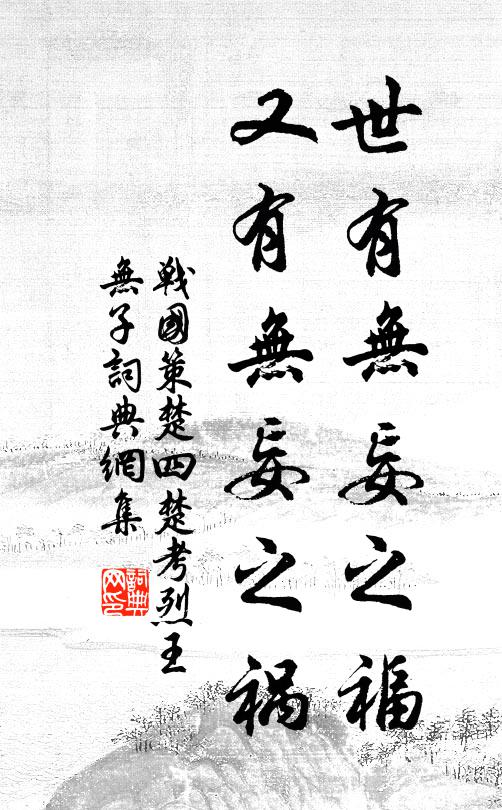 世有無妄之福
又有無妄之祸
戰國策楚四楚考烈王
無子詞典網集
詞典网印